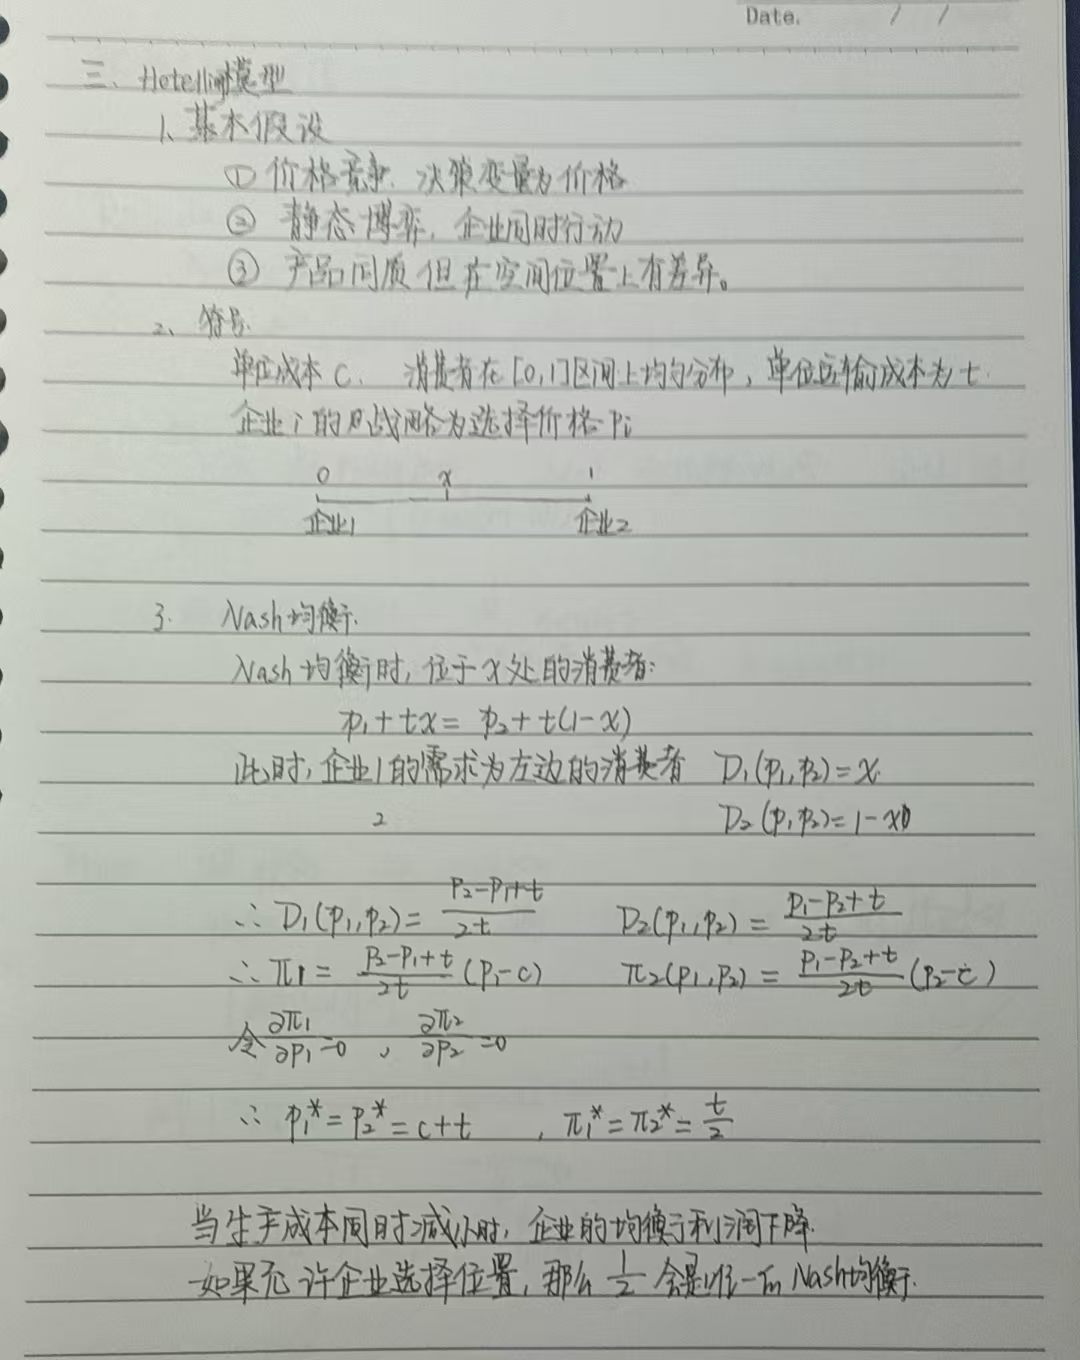 Date. / /
三、Hotelling模型
1、基本假设
① 价格竞争. 决策变量为价格
② 静态博弈, 企业同时行动
③ 产品同质但在空间位置上有差异。
2、符号.
单位成本 c. 消费者在[0,1]区间上均匀分布, 单位运输成本为 t.
企业 i 的战略为选择价格 Pi
0 x 1
企业1 企业2
3. Nash均衡.
Nash均衡时, 位于 x 处的消费者:
p₁+tx = p₂+t(1-x)
此时, 企业1的需求为左边的消费者 D₁(p₁,p₂)=x.
2 D₂(p₁,p₂)=1-x
∴ D₁(p₁,p₂)= (p₂-p₁+t)/2t D₂(p₁,p₂) = (p₁-p₂+t)/2t
∴ π₁ = (p₂-p₁+t)/2t (p₁-c) π₂(p₁,p₂) = (p₁-p₂+t)/2t (p₂-c)
令 ∂π₁/∂p₁=0 , ∂π₂/∂p₂=0
∴ p₁*=p₂*=c+t , π₁*=π₂*= t/2
当生产成本同时减小时, 企业的均衡利润下降.
如果允许企业选择位置, 那么 1/2 会是唯一的 Nash均衡.